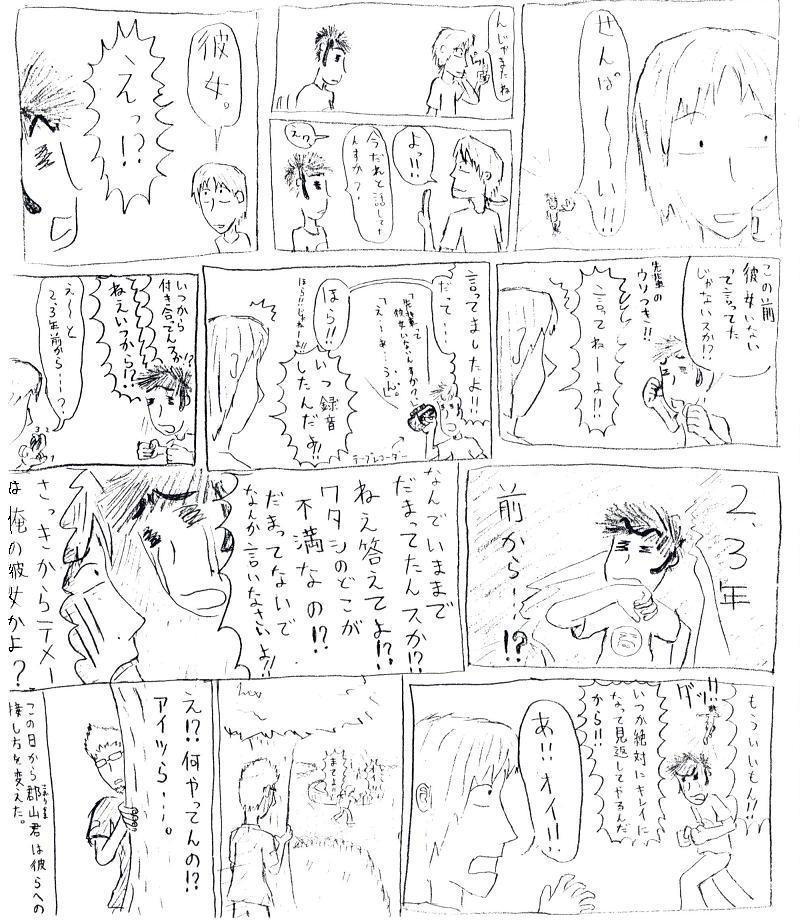 せんぱ〜〜〜い!!
んじゃまたね
よっ!!
今だれと話してた
んすか?
えっ?
彼女。
えっ!?
この前
彼女いない
って言ってた
じゃないスか!?
先輩の
ウソつき!!
言ってねーよ!!
言ってましたよ!!
だって…
「先輩って
彼女いないんスか?」
「え…あ…うん。」
ほら!!
ほら!!じゃねーよ!!
いつ録音
したんだよ!!
テープレコーダー
いつから
付き合ってんスか!?
ねえいつから!?
え〜と
2,3年前から…?
2、3年
前から…!?
なんでいままで
だまってたんスか!?
ねえ答えてよ!?
ワタシのどこが
不満なの!?
だまってないで
なんか言いなさいよ!!
さっきからテメー
は俺の彼女かよ?
もういいもん!!
ダッ!!
いつか絶対にキレイに
なって見返してやるんだ
から!!
あ!!オイ!!
まてよ
え!?何やってんの!?
アイツら…。
この日から郡山君は彼らへの
こおりやま
接し方を変えた。